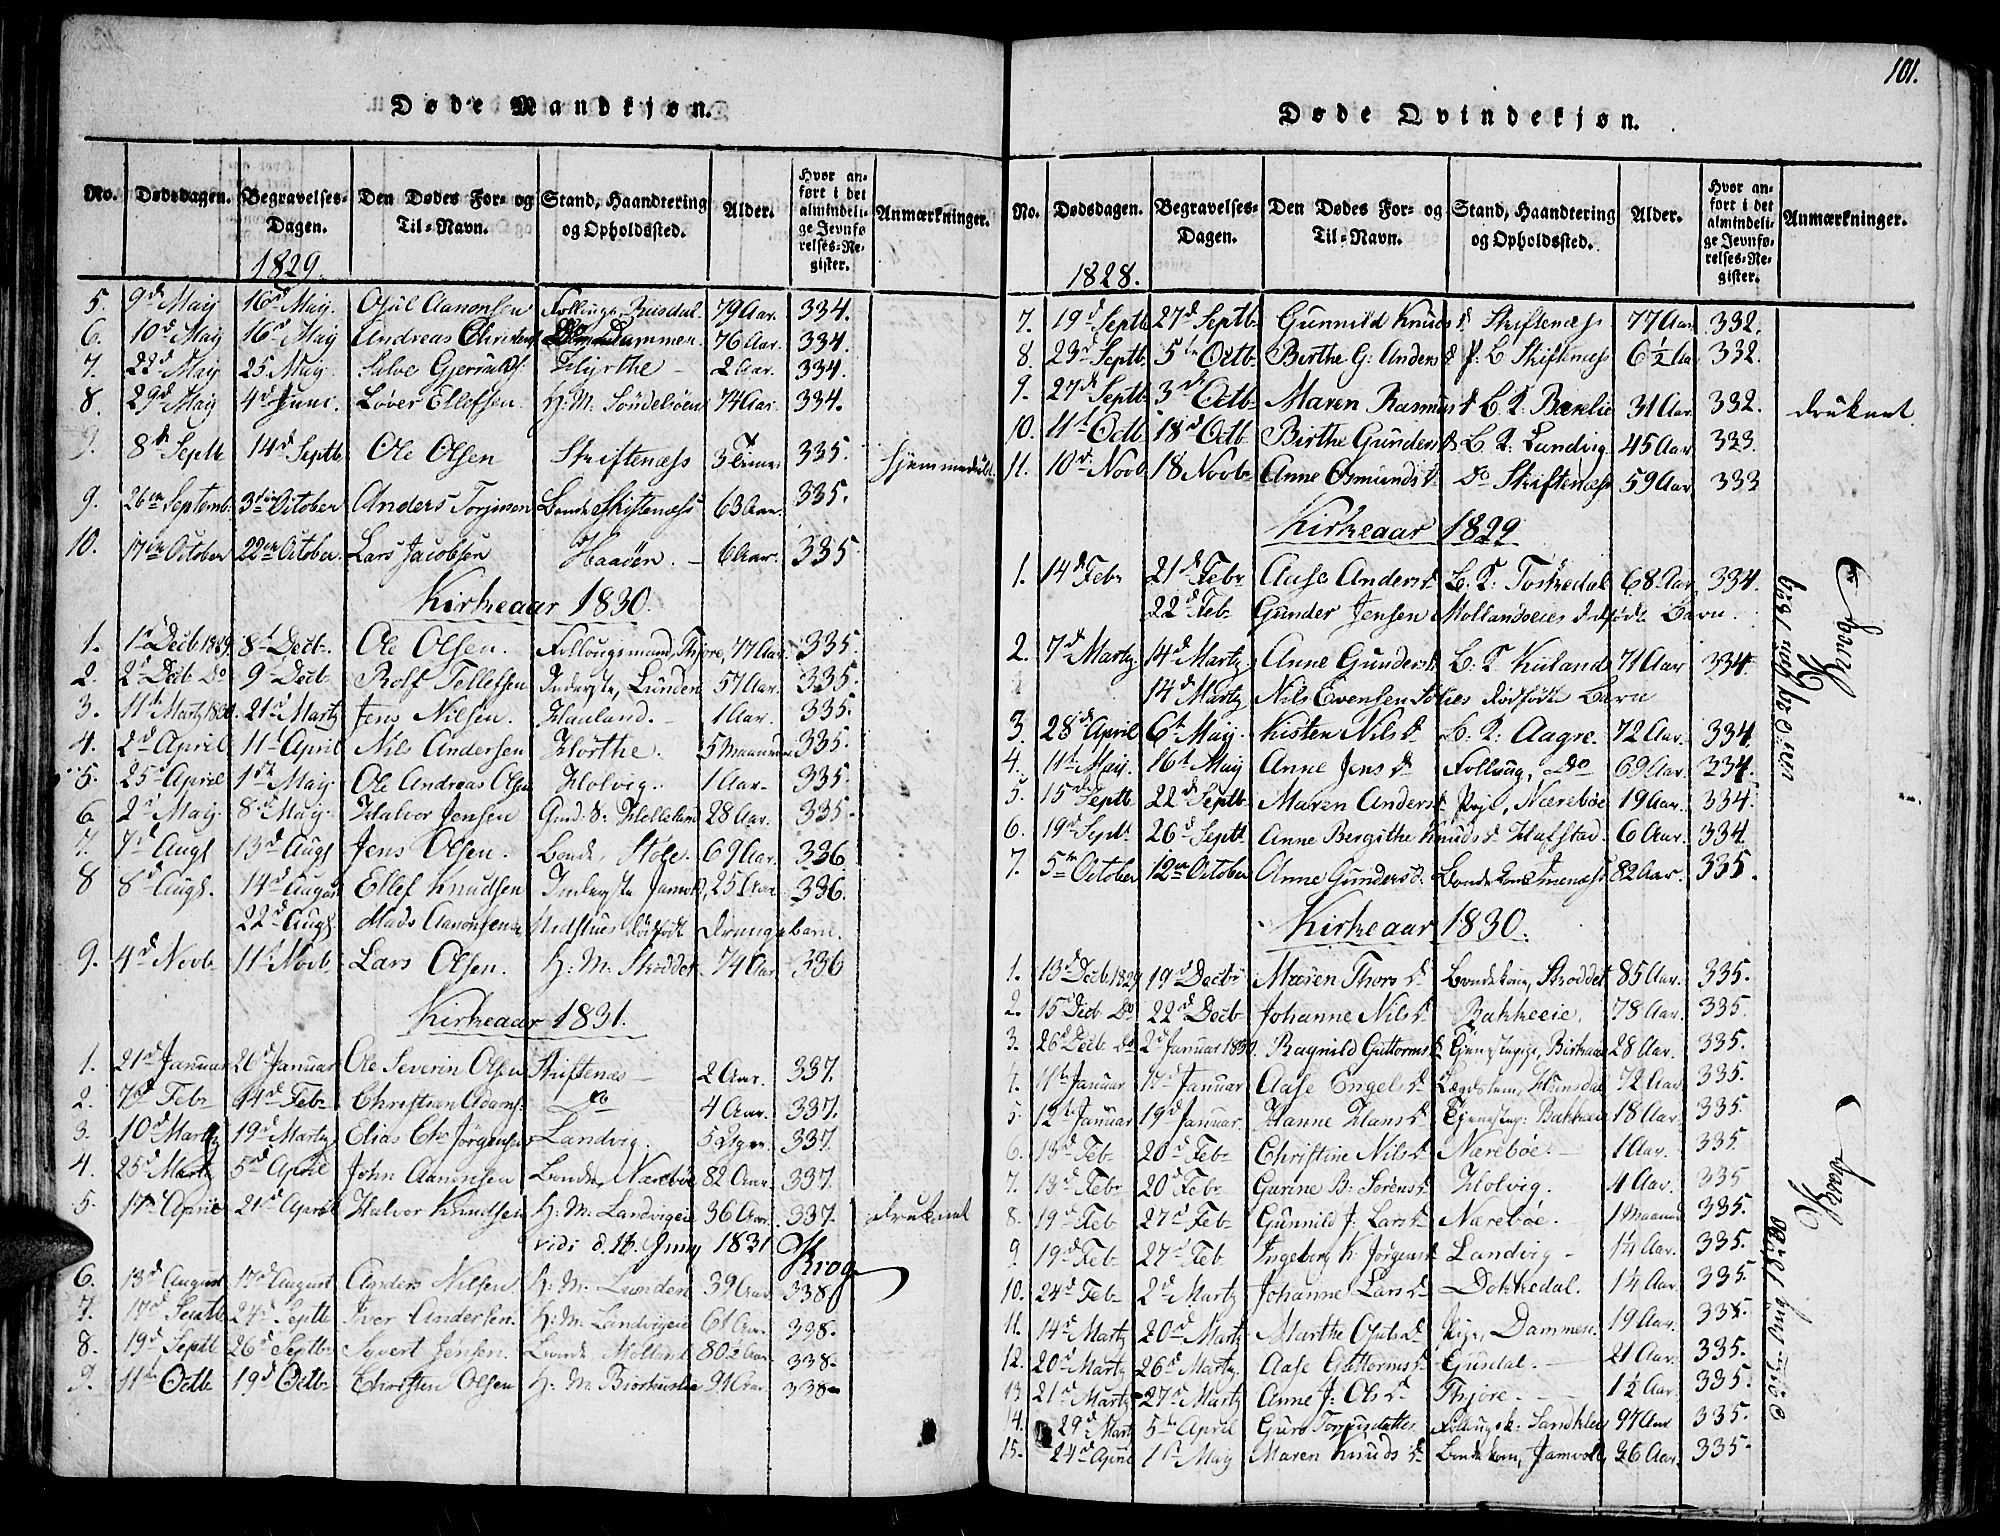 101.
Døde Mandkjøn.
No. Dødsdagen. Begravelses-Dagen. Den Dødes For- og Til-Navn. Stand, Haandtering og Opholdssted. Alder. Hvor anført i det almindelige Jevnførelses-Register. Anmærkninger.
1829.
5. 9d Maij 16d Maij Ojul Aanonsen Rusdal 79 Aar. 334.
6. 10d Maij 16d Maij Andreas Dammen. 76 Aar. 334.
7. 22d Maij 25 Maij. Salve 2 Aar. 334.
8. 29d Maij 4d Juni. Lover Ellefsen. H: M: 74 Aar. 334.
9. 8d Septb 14d Septb Ole Olsen Skriftenæss 3 335. hjemmedøbt
9. 26en Septemb. 3die October Anders Torjussen Bonde Skiftenæss 63 Aar. 335.
10. 17en October 22en October. Lars Jacobsen Haaöen. - 6 Aar. 335
Kirkeaar 1830.
1. 1d Decb 1829. 8d Decb. Ole Olsen. Follougsmand, Thjöre, 77 Aar. 335.
2. 2d Decb Do 9d Decb Rolf Tellefsen Inderste, Lunden 57 Aar. 335.
3. 11t Martz 1830. 21d Martz Jens Nilsen. Hauland. - 1 Aar. 335.
4. 2d April 11 April Nils Andersen 5 Maaneder 335.
5. 25d April 1ste Maij Ole Andreas Olsen Holvig. 1 Aar. 335.
6. 2d Maij. 8d Maij. Halvor Jensen Gund. S: Helleland 28 Aar. 335.
7. 7d Augs 13d Augs Jens Olsen. Bonde, Stöle. 69 Aar. 336
8 8d Augs. 14d August Ellef Knudsen Inderste 25 Aar. 336.
22d Augs. Mads Aanonsens dödfödt Drengebarn.
9. 4d Novb 11t Novb Lars Olsen. H: M: Skoddet 74 Aar. 336
Kirkeaar 1831.
1. 21d Januar 26d Januar Ole Severin Olsen Skiftenæs - 2 Aar. 337.
2. 7d Febr 14d Febr Christian Adams. do 4 Aar. 337.
3. 10d Martz 19d Martz Elias Chr Jörgensen Landvig. 5 337.
4. 25d Martz 5d April John Aanonsen Bonde, Nærebö 82 Aar. 337.
5. 17d April 21d April Halvor Knudsen H: M: Landvigeie 36 Aar. 337. druknet
vidi d. 16. Juny 1831. Krog
6. 13d August 17d August Anders Nilsen H: M: Lunden 39 Aar 338
7. 17d Septb 24d Septb Iver Andersen. H: M: Landvigeie 61 Aar. 338.
8. 19d Septb 26d Septbr Sovert Jensen. Bonde, Molland 80 Aar 338.
9. 11te Octb 19d Octb Christen Olsen H: M: 91 Aar. 338.
Døde Qvindekjøn.
No. Dødsdagen. Begravelses-Dagen. Den Dødes For- og Til-Navn. Stand, Haandtering og Opholdssted. Alder. Hvor anført i det almindelige Jevnførelses-Register. Anmærkninger.
1828.
7. 19d Septb 27d Septb Gunnild Knuds D. Skiftenæss 77 Aar 332.
8. 23d Septb 5te Octb Birthe G: Anders D. P. B Skiftenæss 6½ Aar 332.
9. 27d Septb 3d Octb Maren Rasmus D. B. K: 31 Aar. 332. druknet
10. 11t Octb 18d Octb Birthe Gunders D. B. K. Landvig. 45 Aar. 333.
11. 10d Novb 18 Novbr Anne Osmunds D. Do Skiftenæss 59 Aar. 333
Kirkeaar 1829
1. 14d Febr 21d Febr Aase Anders D. B. K. Toskedal 68 Aar. 334.
22d Feb Gunder Jensen Mollandseies dödfödte Barn.
2. 7d Martz 14d Martz Anne Gunders D. B: K Kuland 71 Aar 334.
14d Martz Nils Evensen dödfödte Barn
3. 28de April 6t Maij. Kisten Nils D. B. K: Aagre. 72 Aar. 334.
4. 11t Maij. 16t Maij Anne Jens D. Follaug, Do 69 Aar. 334.
5. 15d Septb. 22d Septb Maren Anders D. Pige, Nærebøe 19 Aar. 334.
6. 19d Septb 26d Septb Anne Bergithe Knuds D. Hufstad. 6 Aar. 334
7. 5te October 12te October Anne Gunders D. Bondekone 82 Aar. 335.
Kirkeaar 1830.
1. 13d Decb. 1829 19d Decbr Maren Thors D. Bondekone, Skoddet 85 Aar. 335.
2. 15d Decb Do 22d Decb Johanne Nils D. Bakkeeie. 78 Aar. 335.
3. 26d Decb Do 2d Januar 1830. Ragnild Guttorms D. Tjenestepige, 28 Aar. 335.
4. 11te Januar 17d Januar Aase Engels D. 72 Aar. 335.
5 12te Januar 19d Januar. Hanne Hans D. Tjenestep: 18 Aar. 335
6. 13d Feb 20d Feb Christine Nils D. Nærebøe. - 1 Aar. 335
7. 13d Feb 20d Febr Gurine B: Sörens D. Holvig. 4 Aar. 335
8. 19d Feb 27d Feb Gunnild J. Lars D. Nærebøe. 1 Maaned 335.
9 19d Feb 27d Feb Ingeborg K. Jörgens D. Landvig - 1¼ Aar. 335.
10. 24d Feb 2d Martz Johanne Lars D. Dokkedal. 1¼ Aar. 335.
11. 14d Martz 20d Martz Marthe Ojuls D. Pige, Dammen. 19 Aar. 335.
12. 20d Martz 26d Martz. Aase Guttorms D. Gusdal. - 21 Aar. 335.
13 21d Martz 27d Martz. Anne J. Ols D. Thjöre - 1½ Aar. 335.
14. 29d Mart 5te April Guro Torjusdatter 97 Aar 335.
15. 24d April 1ste Maij Maren Knuds D. Bondekone, 26 Aar. 335.
Krog
Krog